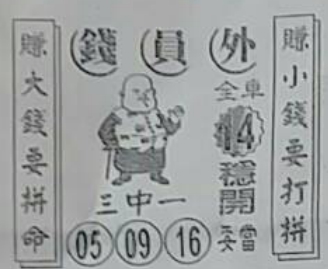 錢員外
賺小錢要打拼
賺大錢要拼命
全車
14
穩開
妥當
三中一
05 09 16